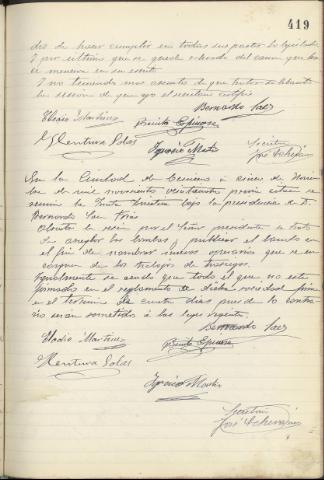 419
dos de hacer cumplir en todas sus partes lo
I por ultimo que se
se menciona en su escrito
I no teniendo mas asuntos de que tratar se levanto
la sesion de que yo el secretario certifico
Bernardo Saez
Eladio Martinez
Benito Espinosa
Ventura Solas
Ignacio Mate
Secretario
José Echevarria
En la Ciudad de a cinco de
bre de mil novecientos previa citacion se
reunio la Junta Directiva bajo la presidencia de D.
Bernardo Saez
Abierta la sesion por el Señor presidente se trata
de arreglar las y publicar el bando con
el fin de nombrar nuevos operarios que se en
carguen de los trabajos de
Igualmente se acordo que todo el que no este
firmado en el reglamento de dicha sociedad firme
en el termino de cuatro dias pues de lo contra
rio seran sometidos á las leyes vigentes
Bernardo Saez
Eladio Martinez
Benito Espinosa
Ventura Solas
Ignacio Mate
Secretario
José Echevarria